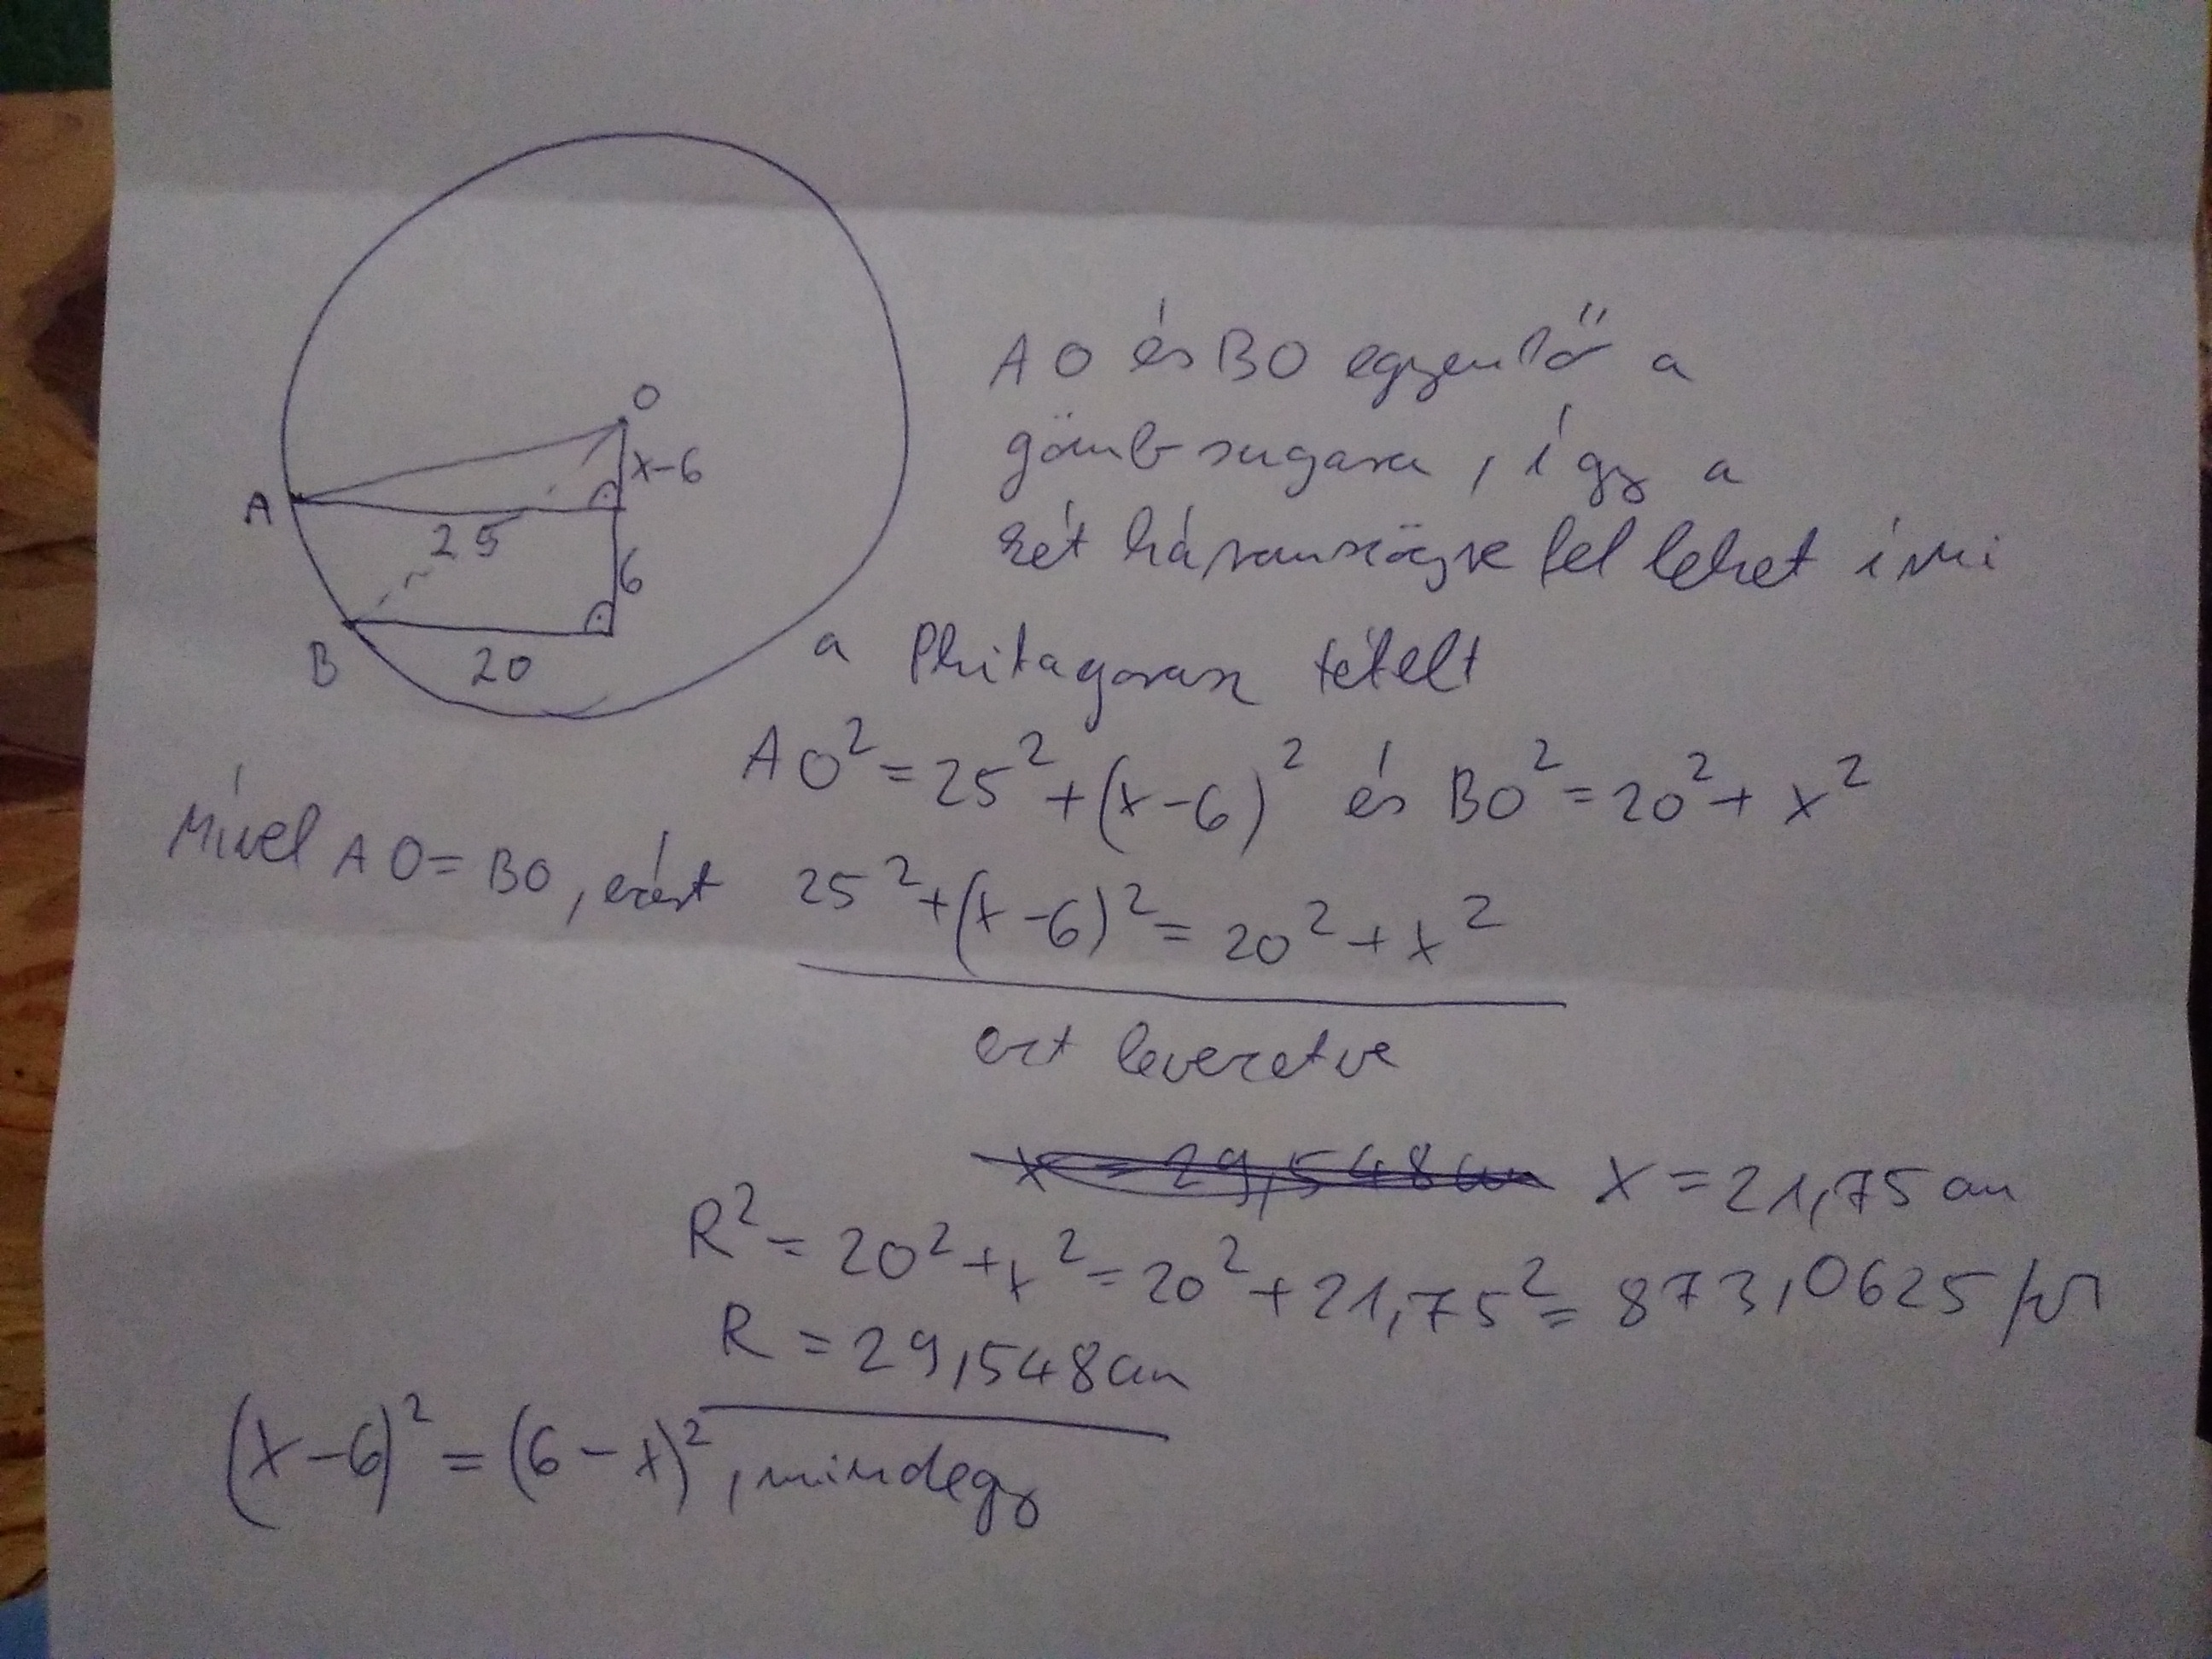 O
x-6
A
25
6
B
20
AO és BO egyenlő a
gömb sugara, így a
két háromszögre fel lehet írni
a Phitagorasz tételt
AO² = 25² + (x-6)² és BO² = 20² + x²
Mivel AO = BO, ezért 25² + (x-6)² = 20² + x²
ezt levezetve
x = 29,548 cm x = 21,75 cm
R² = 20² + x² = 20² + 21,75² = 873,0625 /√
R = 29,548 cm
(x-6)² = (6-x)², mindegy